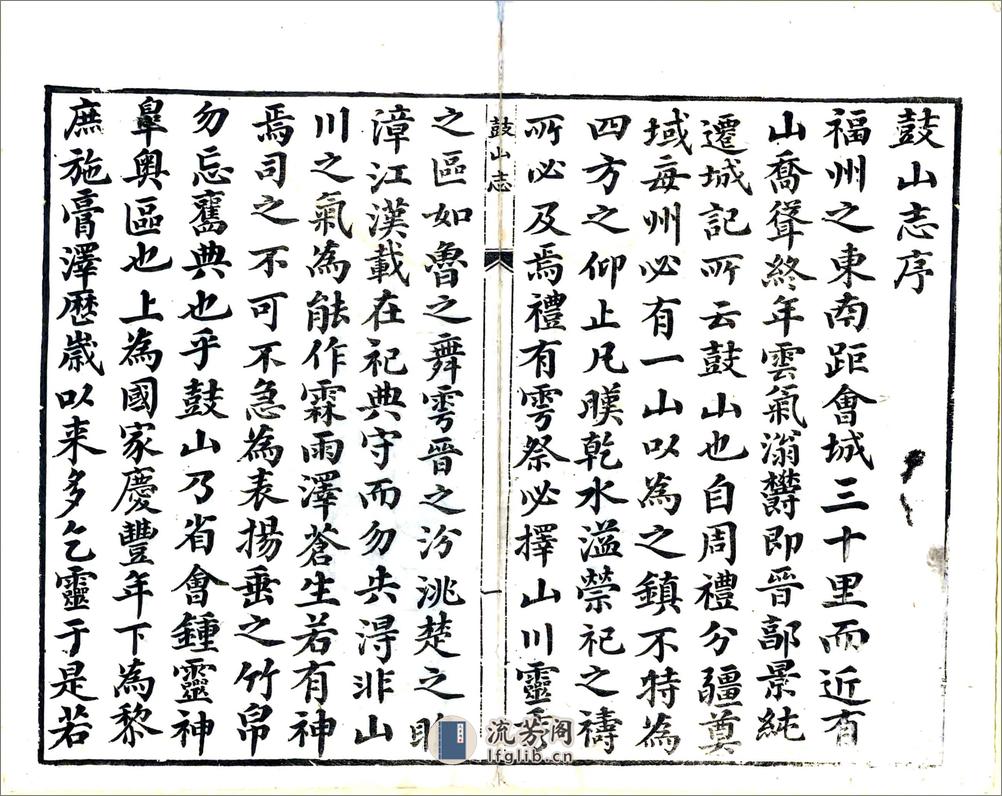 鼓山志序
福州之東南距會城三十里而近有
山喬聳終年雲氣滃欝即晉郭景純
遷城記所云鼓山也自周禮分疆奠
域每州必有一山以為之鎮不特為
四方之仰止凡暵乾水溢禜祀之禱
所必及焉禮有雩祭必擇山川靈秀
鼓山志
一
之區如魯之舞雩晉之汾洮楚之睢
漳江漢載在祀典守而勿失得非山
川之氣為能作霖雨澤蒼生若有神
焉司之不可不急為表揚垂之竹帛
勿忘舊典也乎鼓山乃省會鍾靈神
皐奥區也上為國家慶豐年下為黎
庶施膏澤歷歲以来多乞靈于是若
流芳阁
lfglib.cn